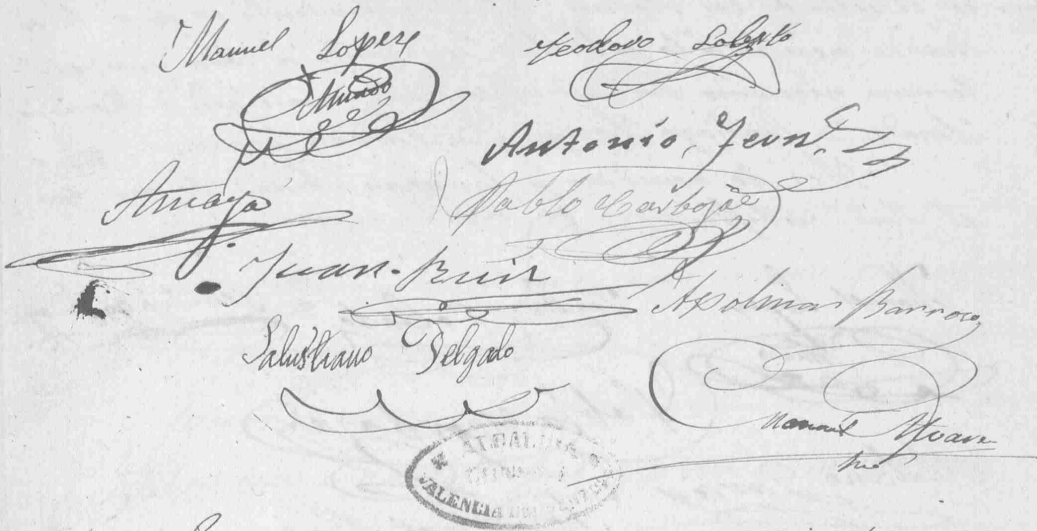 Manuel Lopez
Mundo
Teodoro Lobato
Antonio, Fern.
Amaya
Pablo Carbajal
Juan Ruiz
Apolinar Barroso
Salustiano Delgado
Manuel
ALCALDIA
VALENCIA